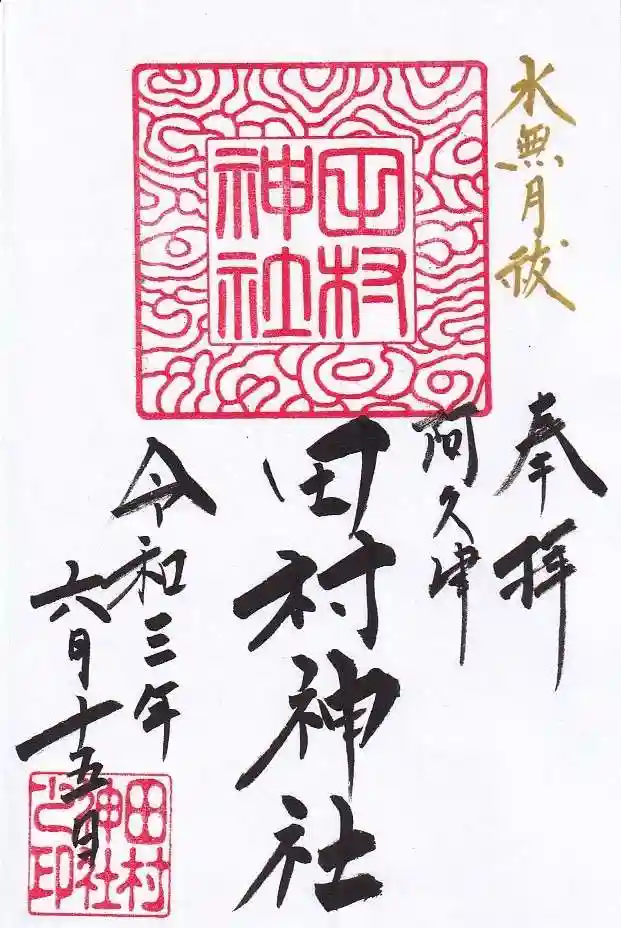 水無月祓
奉拝
阿久津
田村神社
令和三年
六月十五日
田村
神社
田村
神社
之印